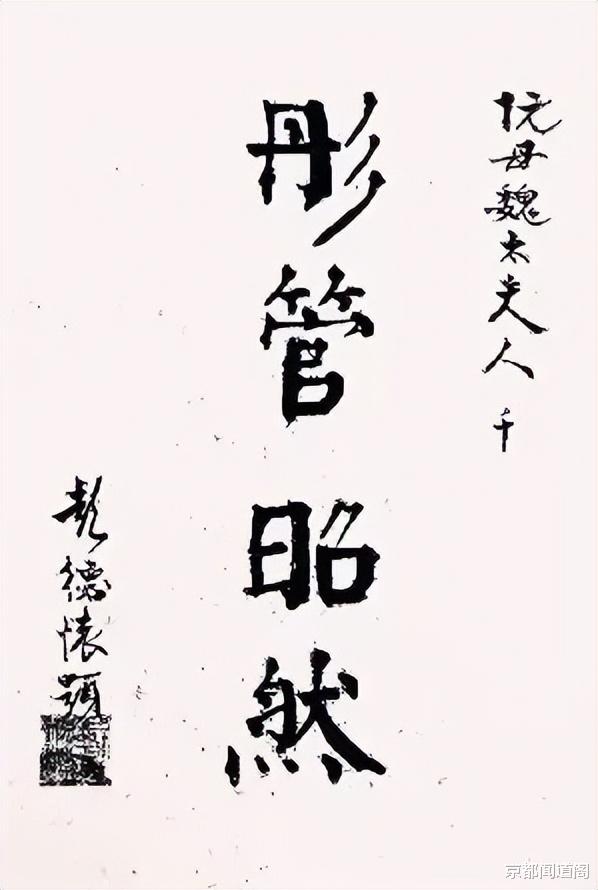 阮母魏太夫人 千
彤管昭然
彭德懷題
京都闻道阁